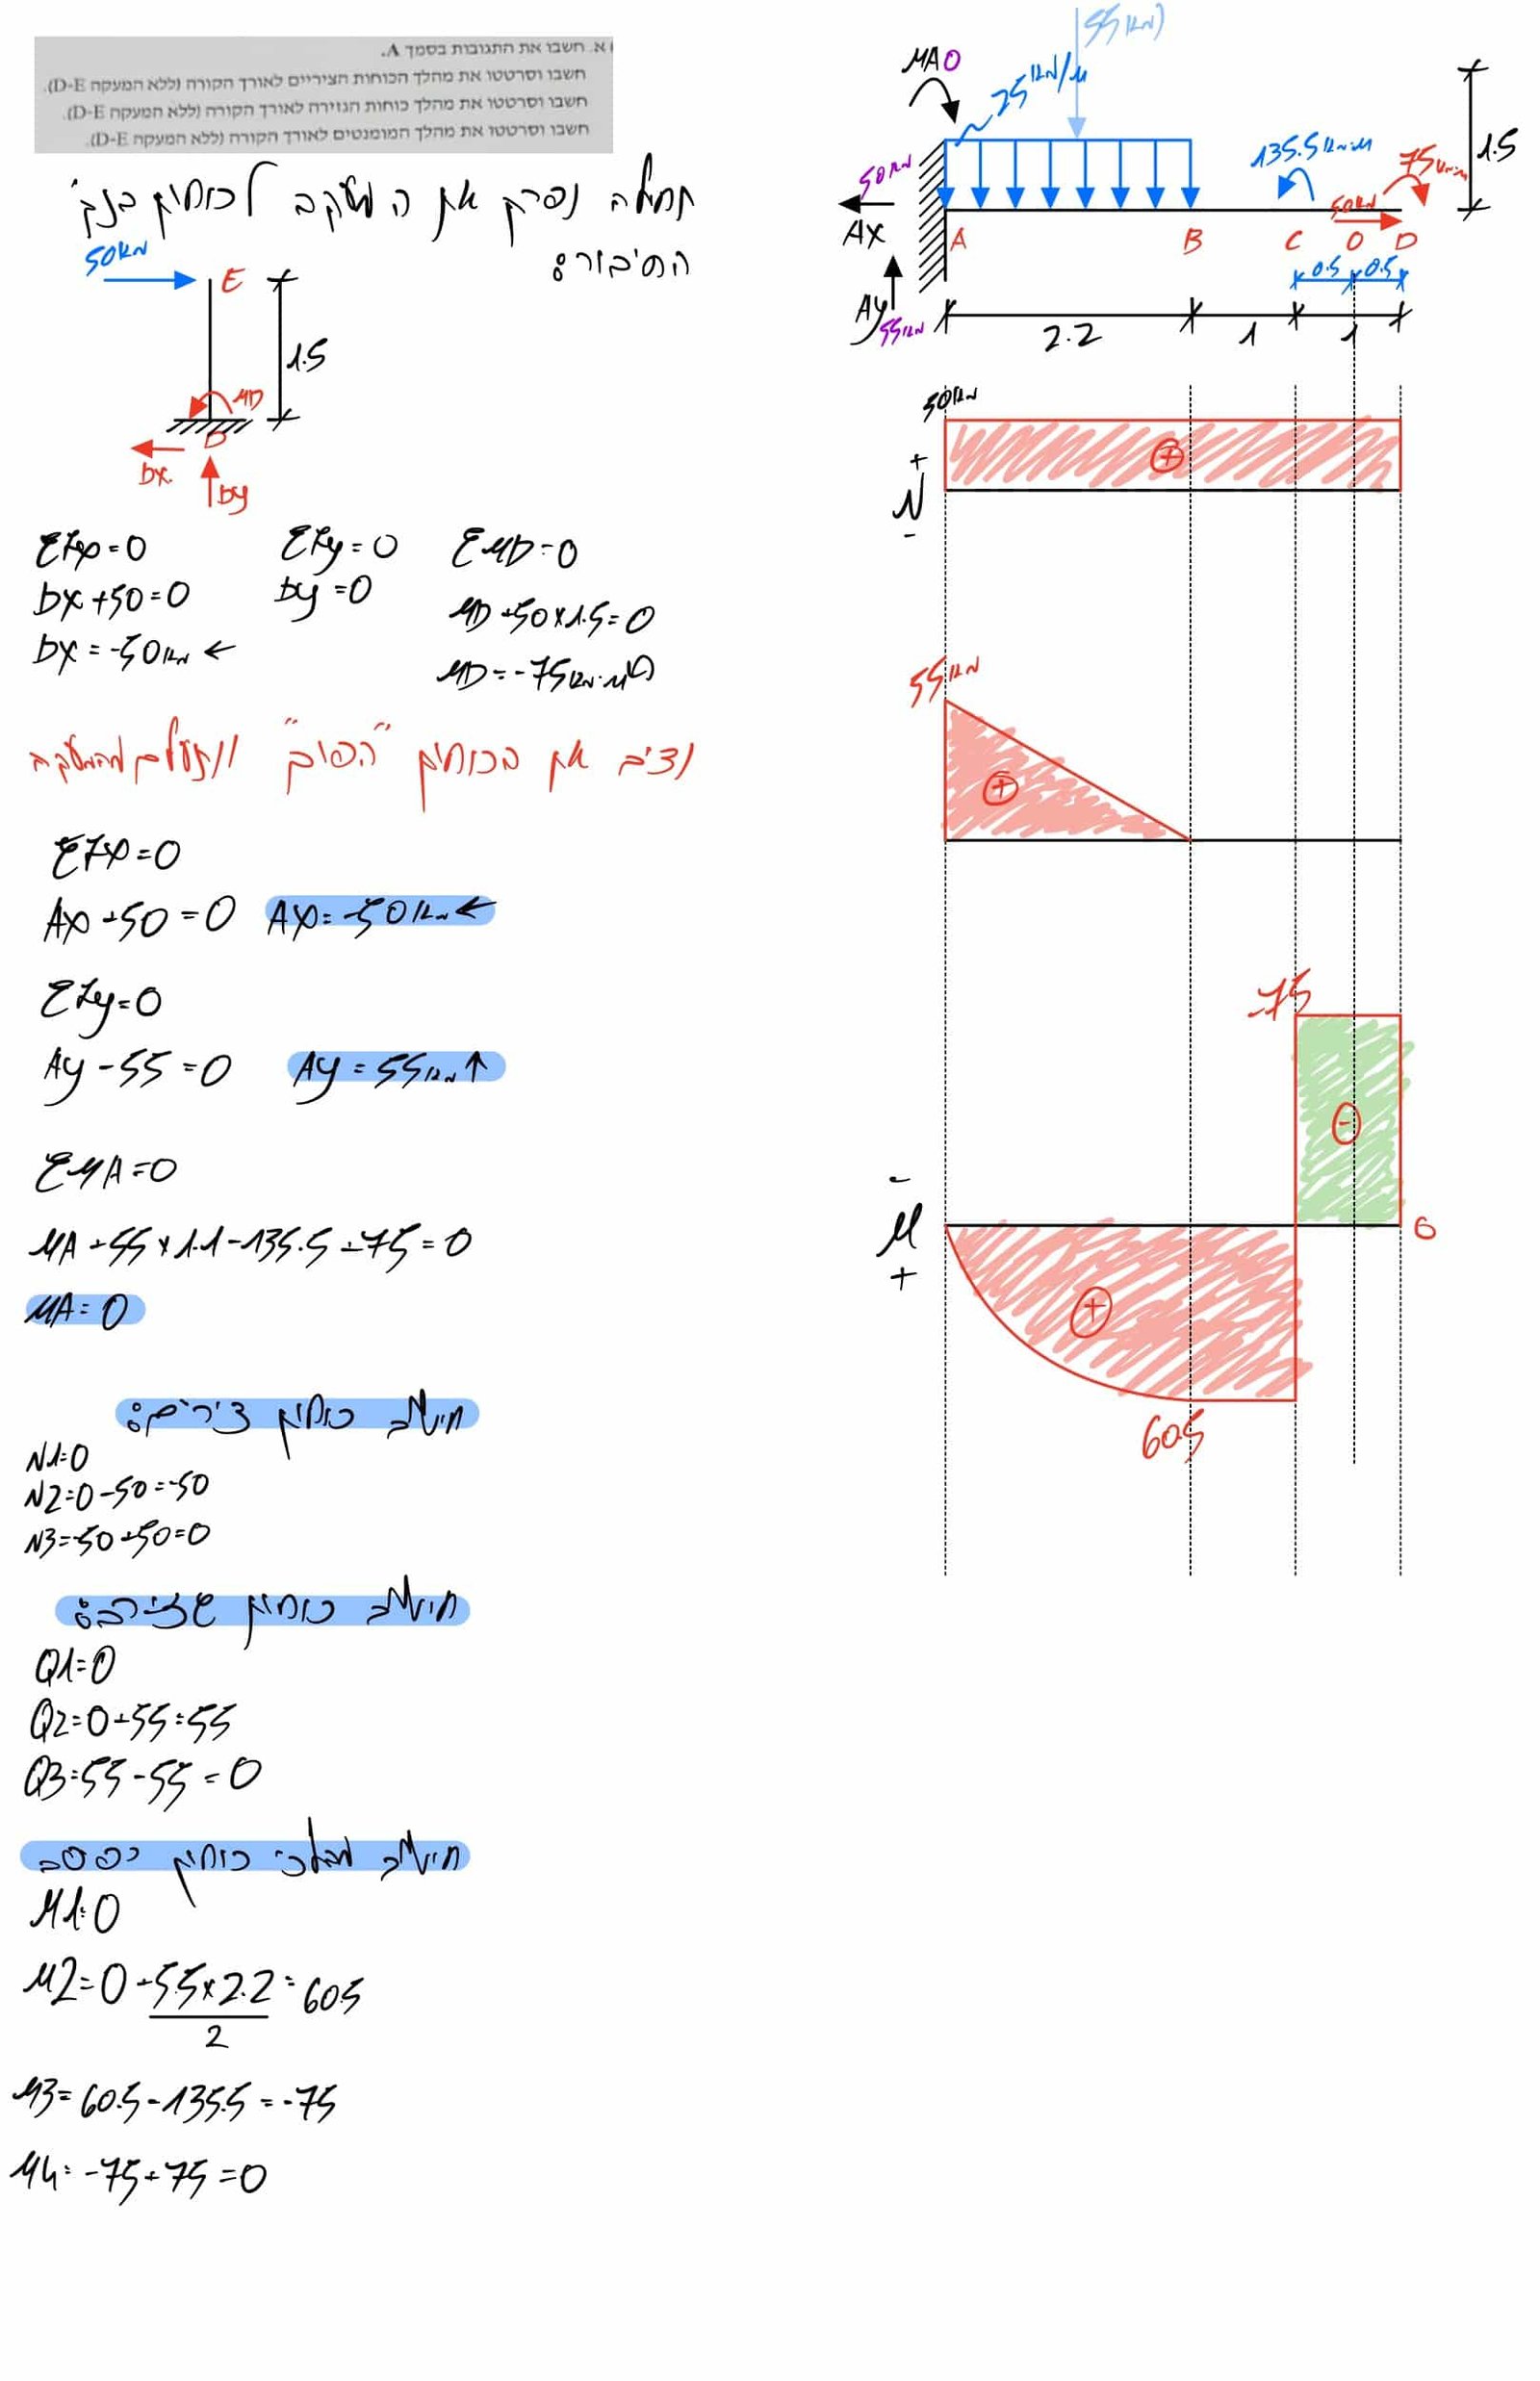 א. חשבו את התגובות בסמך A.
חשבו וסרטטו את מהלך הכוחות הציריים לאורך הקורה (ללא המעקה D-E).
חשבו וסרטטו את מהלך כוחות הגזירה לאורך הקורה (ללא המעקה D-E).
חשבו וסרטטו את מהלך המומנטים לאורך הקורה (ללא המעקה D-E).
תחילה נפרק את המעקה לכוחות בנק'
החיבור:
50kN
E
1.5
MD
D
Dx
Dy
ΣFx=0 ΣFy=0 ΣMD=0
Dx+50=0 Dy=0 MD+50×1.5=0
Dx=-50kN ← MD=-75kN·M
נציב את הכוחות "הפוך" ונתעלם מהמעקה
ΣFx=0
Ax+50=0 Ax=-50kN←
ΣFy=0
Ay-55=0 Ay=55kN↑
ΣMA=0
MA+55×1.1-135.5+75=0
MA=0
חישוב כוחות צירים:
N1=0
N2=0-50=-50
N3=-50+50=0
חישוב כוחות גזירה:
Q1=0
Q2=0+55=55
Q3=55-55=0
חישוב מהלכי כוחות כפיפה
M1=0
M2=0+55×2.2=60.5
2
M3=60.5-135.5=-75
M4=-75+75=0
55kN
MA0
25kN/M
50kN
Ax
Ay
55kN
135.5kN·M
75kN·M
50kN
1.5
A B C O D
0.5 0.5
2.2 1 1
50kN
+
N
-
+
55kN
+
-75
-
-
M
+
0
+
60.5